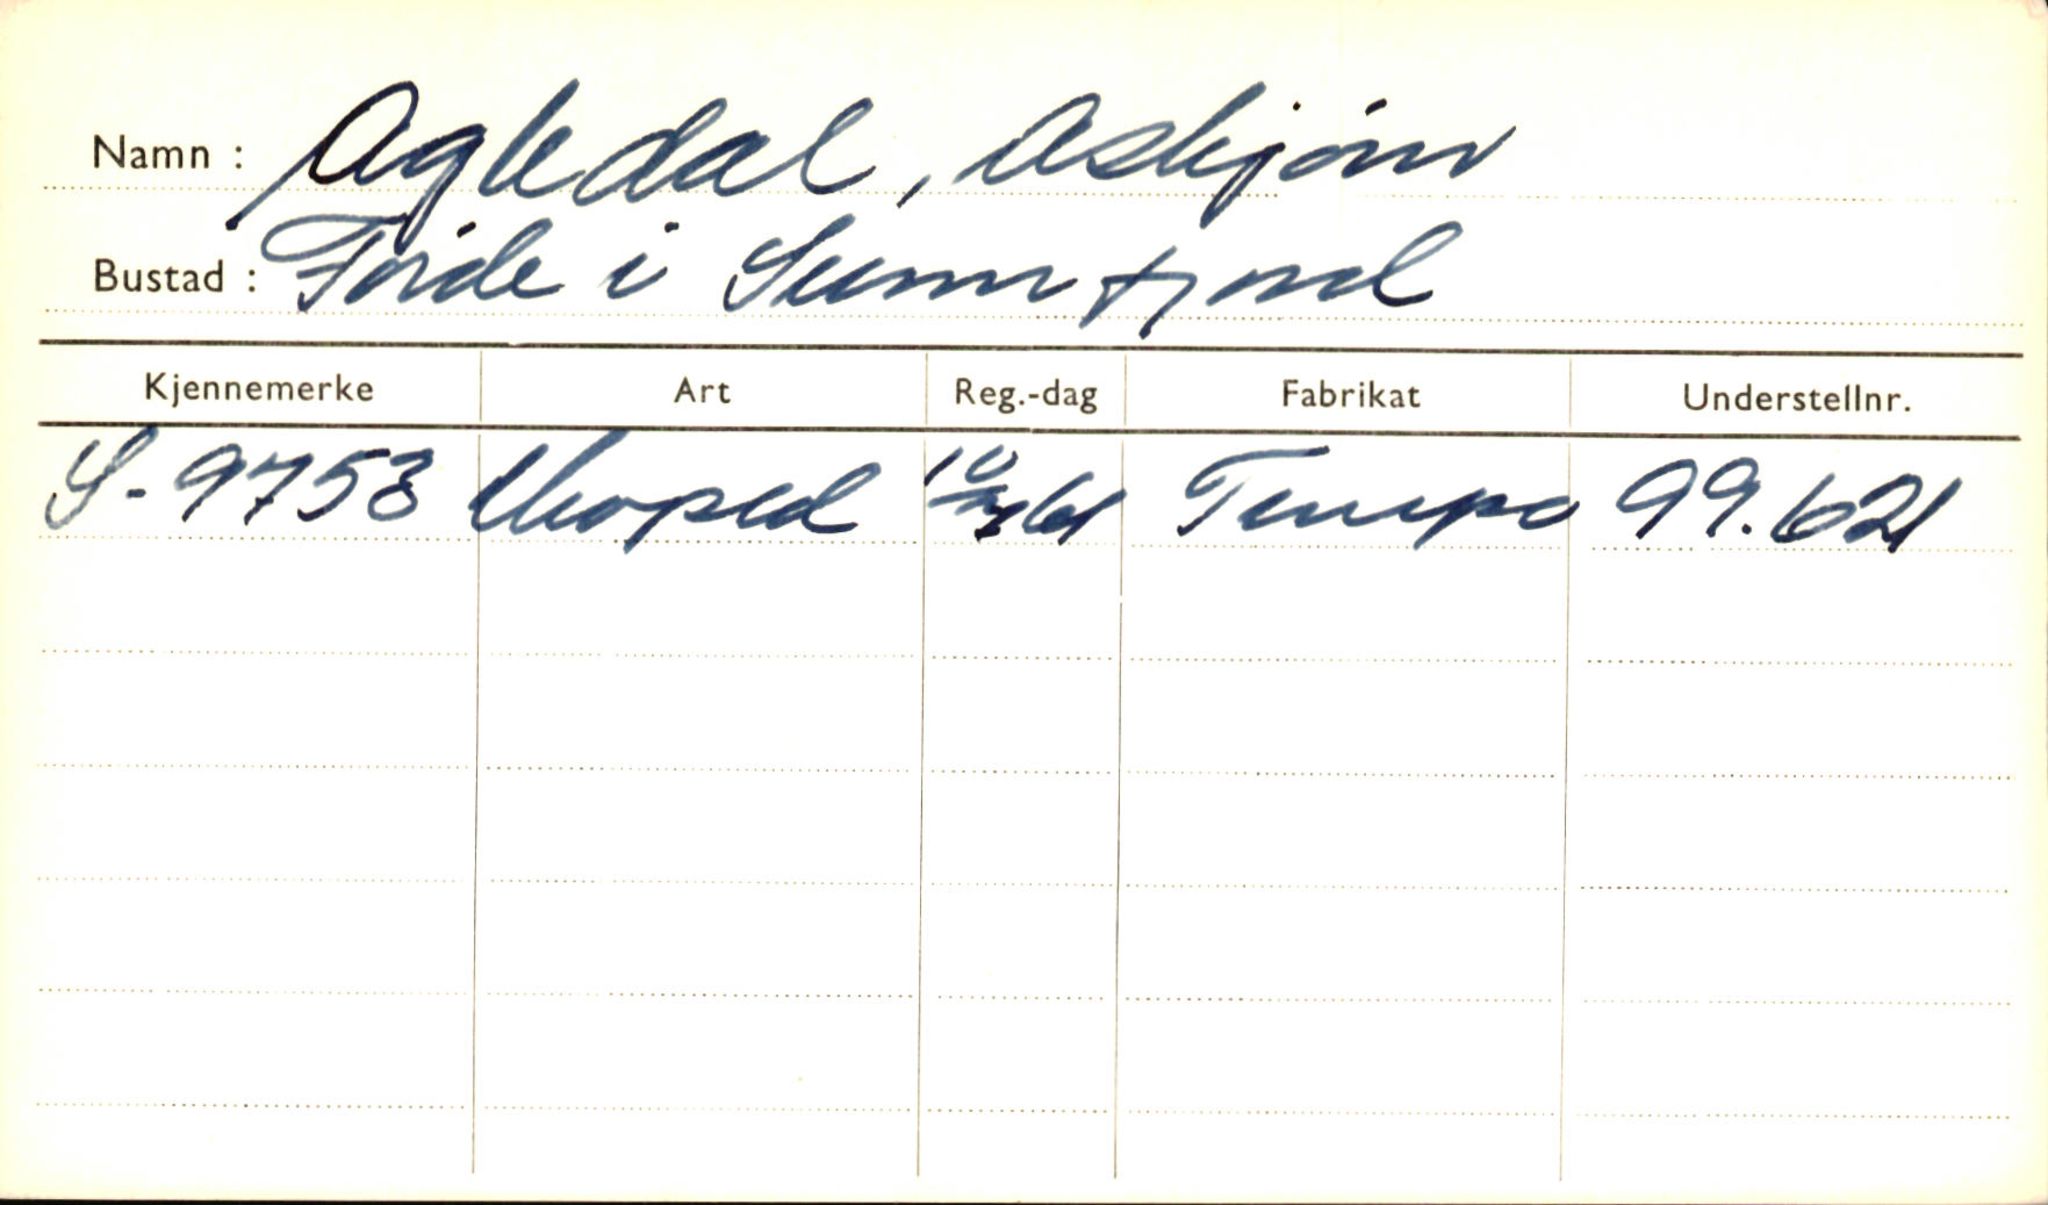 Namn : Agledal, Asbjørn
Bustad : Førde i Sunnfjord
Kjennemerke Art Reg.-dag Fabrikat Understellnr.
S-9753 Moped 10/3 61 Tempo 99.621